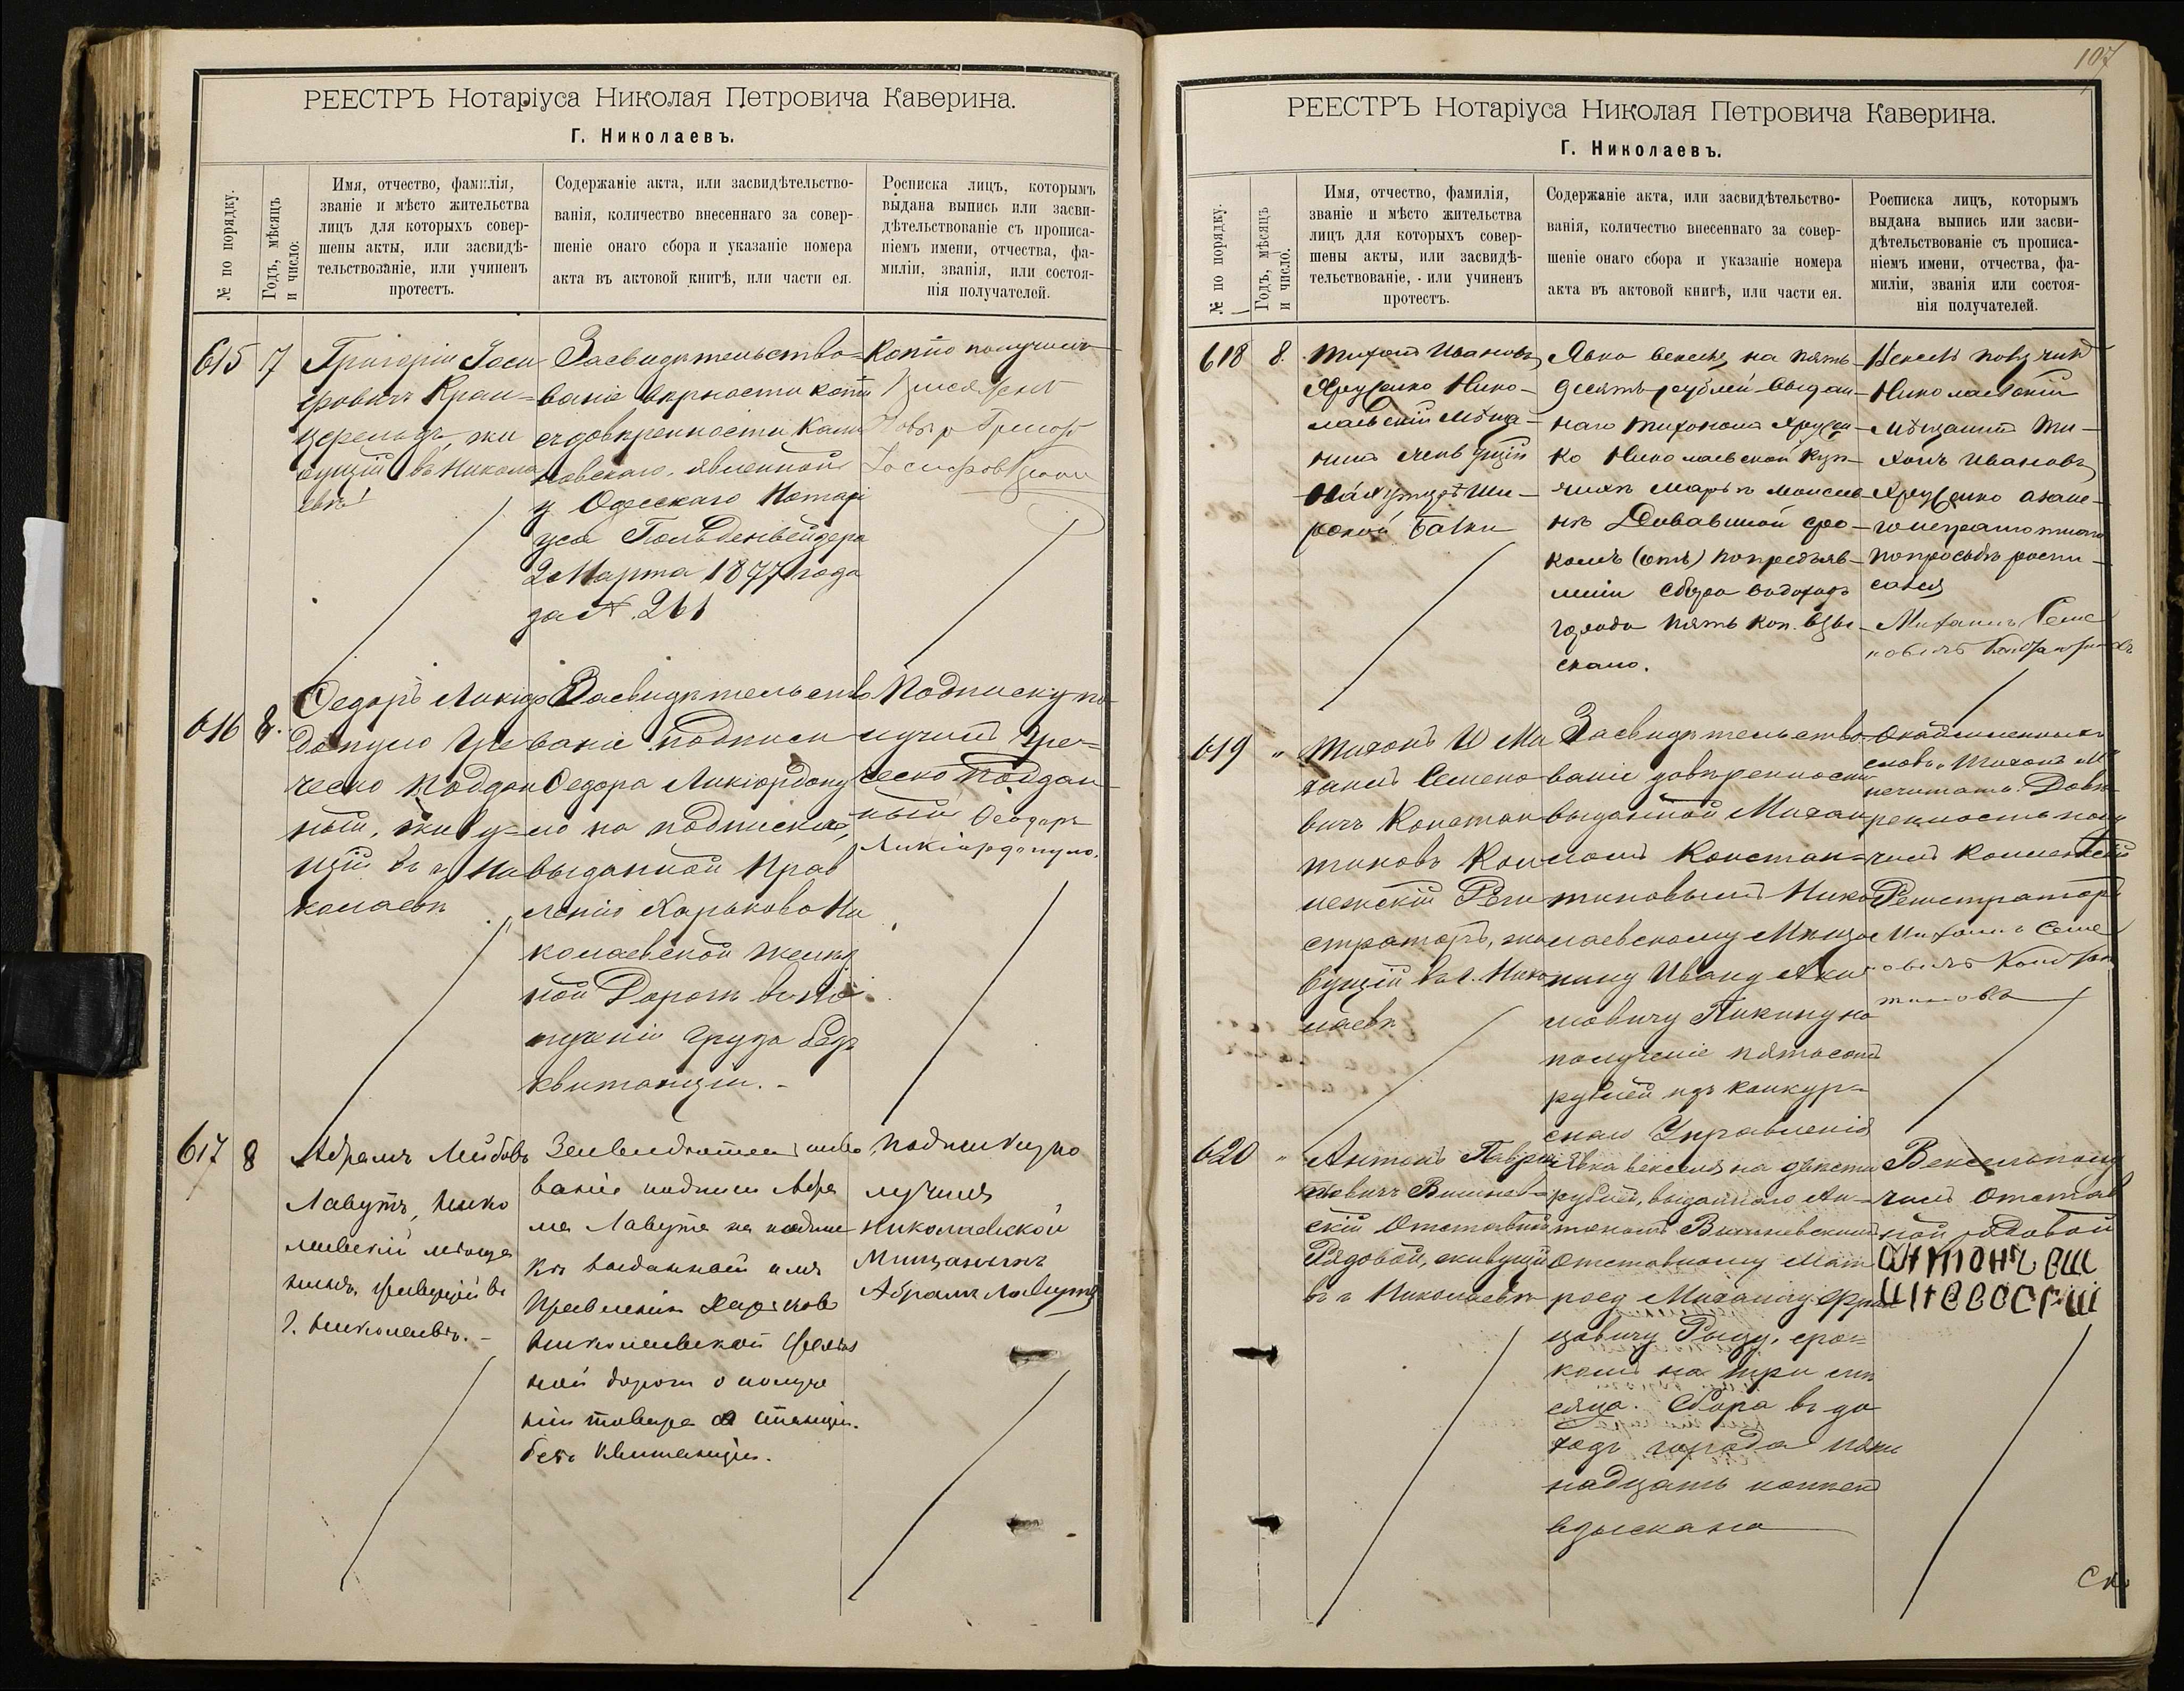 РЕЕСТРЪ Нотаріуса Николая Петровича Каверина.
Г. Николаевъ.
№ по порядку.
Годъ, мѣсяцъ
и число.
Имя, отчество, фамилія,
званіе и мѣсто жительства
лицъ для которыхъ совер-
шены акты, или засвидѣ-
тельствованіе, или учиненъ
протестъ.
Содержаніе акта, или засвидѣтельство-
ванія, количество внесеннаго за совер-
шеніе онаго сбора и указаніе номера
акта въ актовой книгѣ, или части ея.
Росписка лицъ, которымъ
выдана выпись или засви-
дѣтельствованіе съ прописа-
ніемъ имени, отчества, фа-
миліи, званія, или состоя-
нія получателей.
615
7
Григорій Іоси
фовичъ
живущій въ Никола
евѣ
Засвидѣтельство-
ваніе вѣрности копіи
съ довѣренности
явленной
у Одесскаго Нотарі
уса Гольденвейзера
2 Марта 1877 года
за №. 261
Копію получилъ
616
8.
Федоръ
допуло Гре
ческо поддан
ный, живу-
щій въ г. Ни
колаевѣ
Засвидѣтельство
ваніе подписи
Федора
ло на подпискѣ,
выданной Прав
ленію Харьково Ни
колаевской желѣз
ной Дороги въ по
лученіи груза безъ
квитанціи. -
Подписку по
лучилъ Гре=
ческо поддан
ный Феодоръ
617
8
Абрамъ Лейбовъ
Лавутъ, Нико
лаевскій мѣща
нинъ, живущій въ
г. Николаевѣ. -
Засвидѣтельство
ваніе подписи Абра
ма Лавута на подпис
кѣ выданной имъ
Правленію Харьково
Николаевской желѣз
ной дороги о получе
ніи товара со станціи
безъ квитанціи.
Подписку по
лучилъ
Николаевской
Мищанинъ
Абрамъ Лавутъ
107
РЕЕСТРЪ Нотаріуса Николая Петровича Каверина.
Г. Николаевъ.
№ по порядку.
Годъ, мѣсяцъ
и число.
Имя, отчество, фамилія,
званіе и мѣсто жительства
лицъ для которыхъ совер-
шены акты, или засвидѣ-
тельствованіе, или учиненъ
протестъ.
Содержаніе акта, или засвидѣтельство-
ванія, количество внесеннаго за совер-
шеніе онаго сбора и указаніе номера
акта въ актовой книгѣ, или части ея.
Росписка лицъ, которымъ
выдана выпись или засви-
дѣтельствованіе съ прописа-
ніемъ имени, отчества, фа-
миліи, званія или состоя-
нія получателей.
618
8.
Тихонъ Ивановъ
Нико-
лаевскій Мѣща-
нинъ живущій
на хуторѣ Ши-
рокой Балки
Явка векселя на пять-
десятъ рублей выдан-
наго Тихономъ
ко Николаевской Куп-
чихѣ Марьѣ Моисее
нѣ сро-
комъ (отъ) по предъяв-
леніи Сбора въ доходъ
города пять коп. взы-
скано.
Вексель получилъ
Николаевскій
Мѣщанинъ Ти-
хонъ Ивановъ
а за не-
го неграмотнаго
по просьбѣ роспи-
сался
Михаилъ Семе
новичъ Константиновъ
619
"
Тихонъ И Ми
хаилъ Семено
вичъ Констан
тиновъ Кол
лежскій Реги
страторъ, жи
вущій въ г. Нико
лаевѣ
Засвидѣтельство-
ваніе довѣренности
выданной Михаи
ломъ Констан=
тиновымъ Нико
лаевскому Мѣща
нину Ивану Аки
мовичу Пикину на
полученіе пятьсотъ
рублей изъ конкур-
снаго Управленія
слово „Тихонъ И"
нечитать. Довѣ
ренность полу
чилъ Коллежскій
Регистраторъ
Михаилъ Семе
новичъ Констан
тиновъ
620
"
Антонъ Гаври
ловичъ Вишнев=
скій Отставной
Рядовой, живущій
въ г Николаевѣ
Явка векселя на двѣсти
рублей, выданнаго Ан-
тономъ Вишневскимъ
Отставному Мат
росу Михаилу Фран
цовичу сро=
комъ на три мѣ
сяца. Сбора въ до
ходъ города пят
надцать копѣекъ
взыскано
Вексель полу
чилъ Отстав
ной рядовой
Антонъ